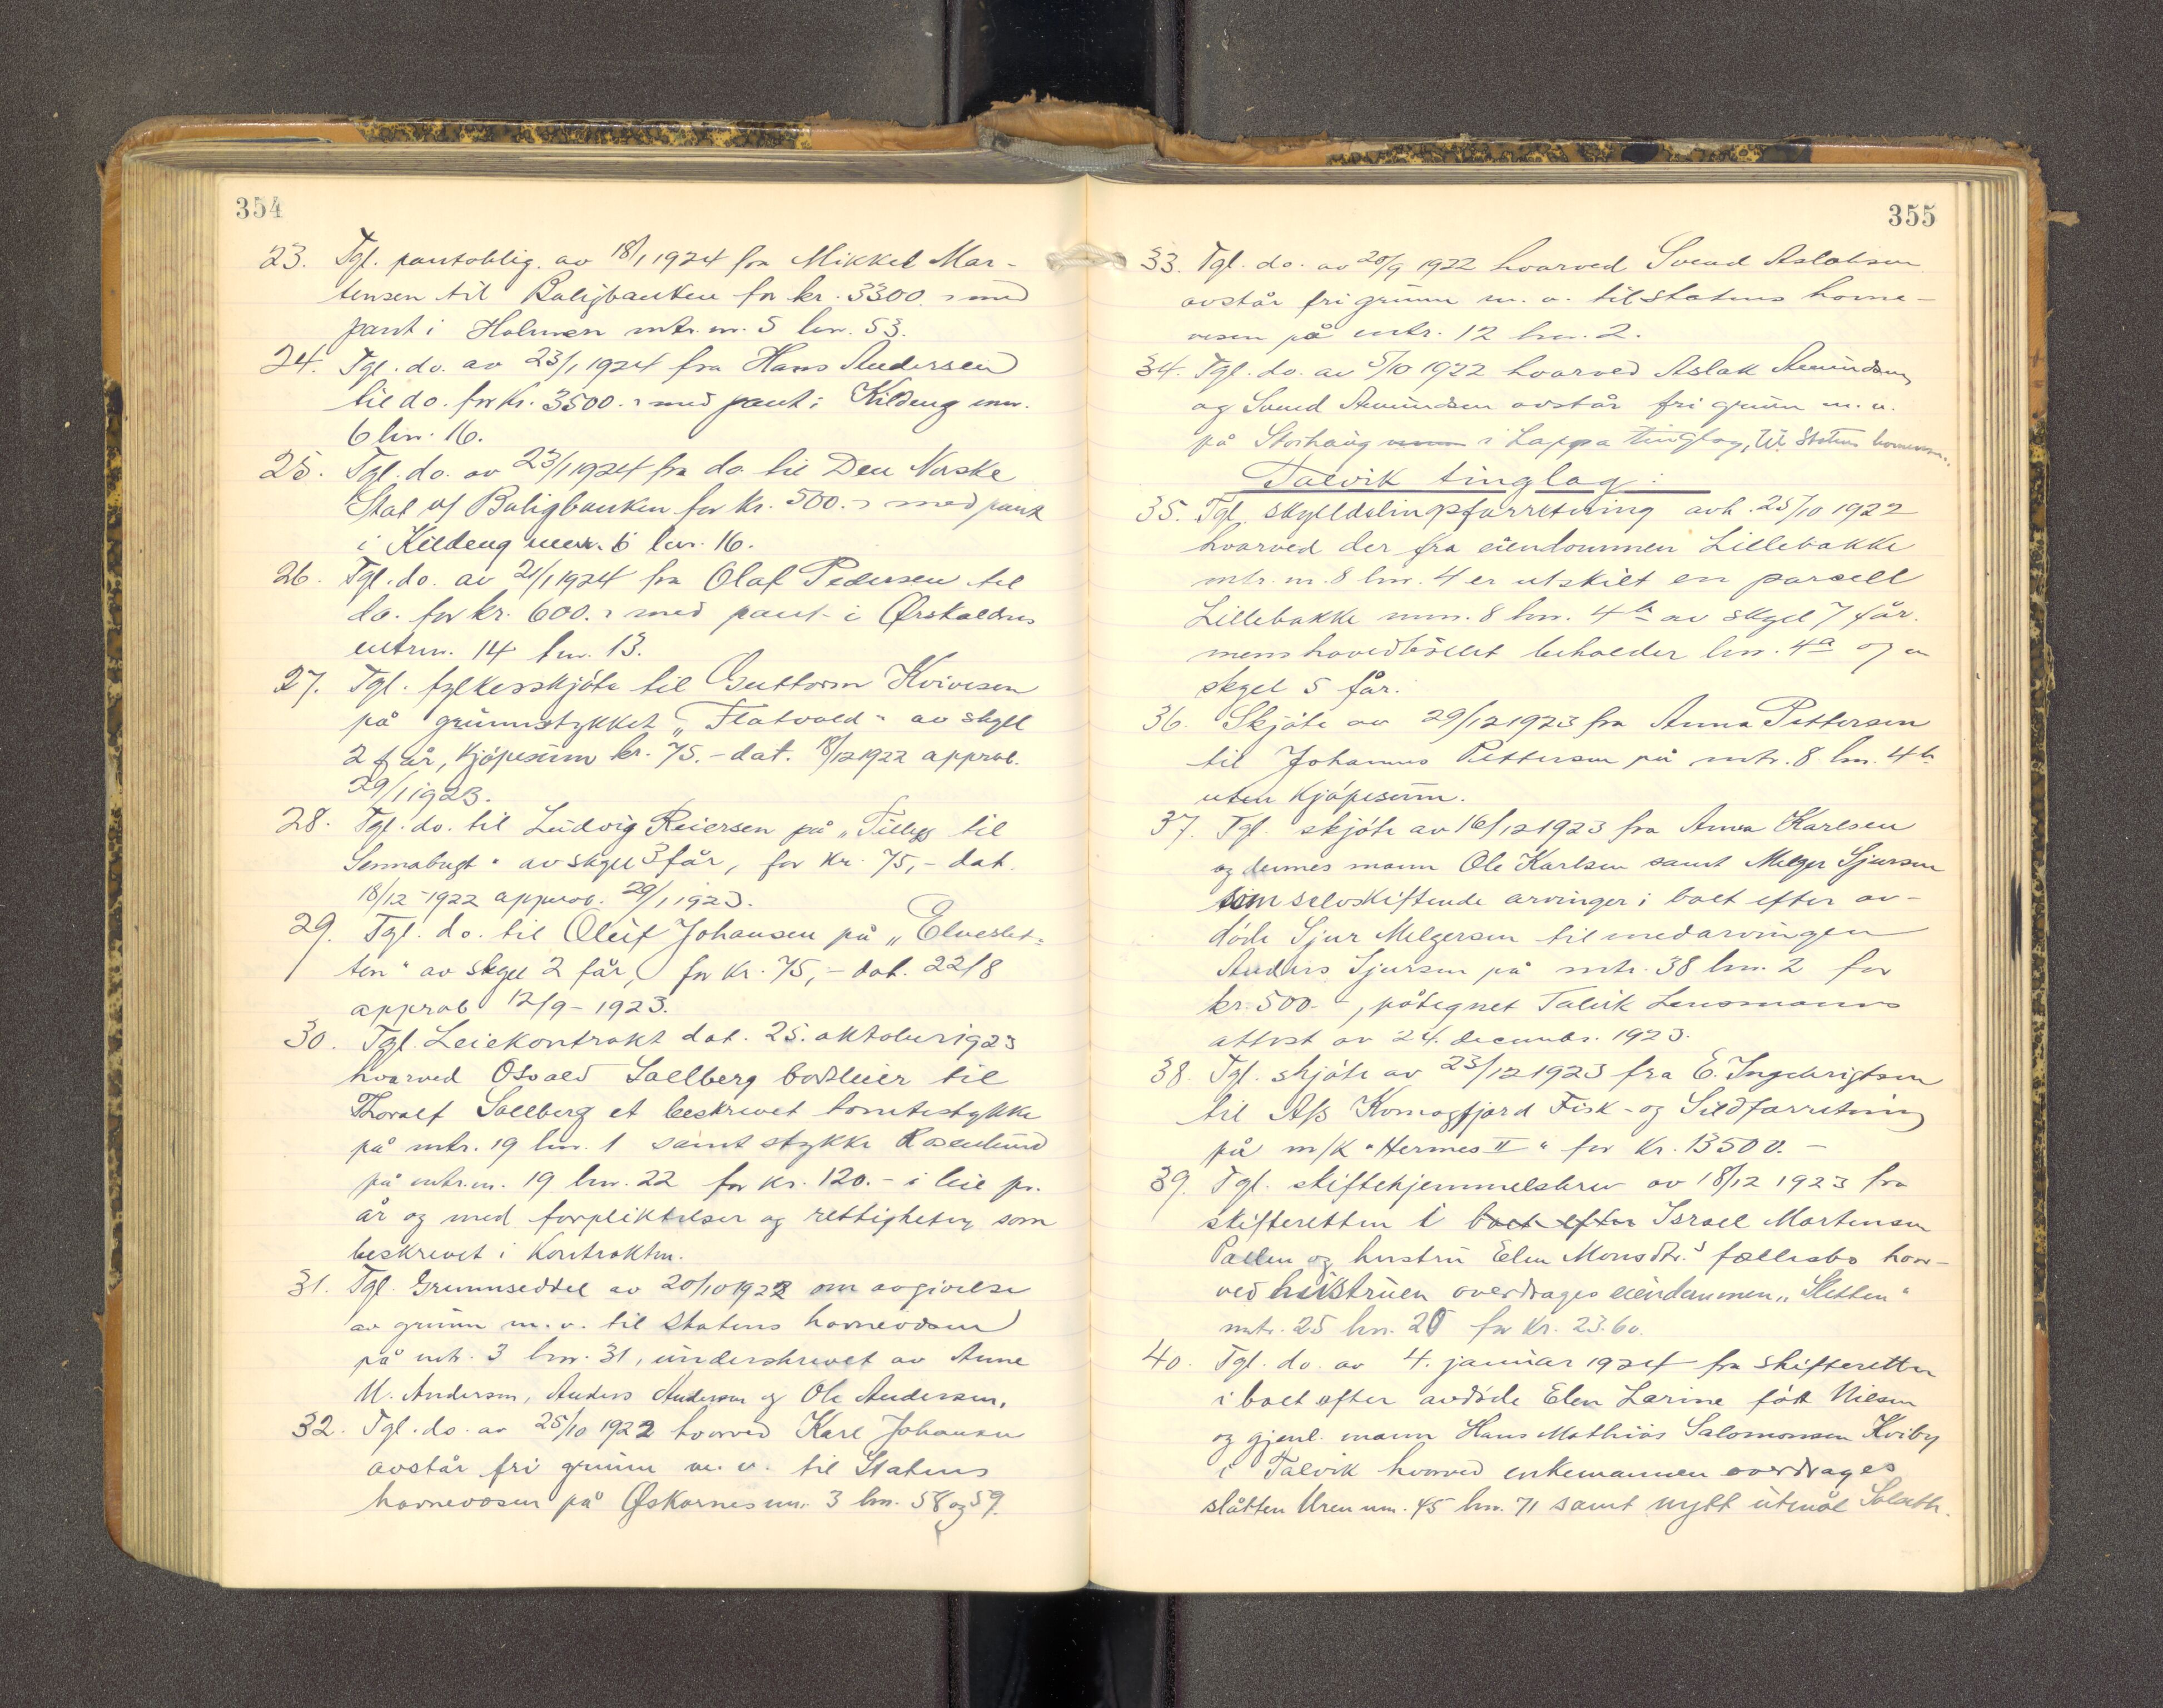 354
23. Tgl. pantoblig. av 18/1 1924 fra Mikkel Mar-
tensen til Boligbanken for kr. 3300.- med
pant i Holmen mtr. nr. 5 lnr. 53.
24. Tgl. do. av 23/1 1924 fra Hans Andersen
til do. for kr. 3500.- med pant i Kildeng mnr.
6 lnr. 16.
25. Tgl. do. av 23/1 1924 fra do til Den Norske
Stat v/ Boligbanken for kr. 500.- med pant
i Kildeng mnr. 6 lnr. 16.
26. Tgl. do. av 21/1 1924 fra Olaf Pedersen til
do. for kr. 600.- med pant i
mtrnr. 14 lnr. 13.
27. Tgl. fylkesskjøte til Guttorm Kvivesen
på grunnstykket „Flatvold" av skyld
2 før, kjøpesum kr. 75.- dat. 18/12 1922 approb.
29/1 1923.
28. Tgl. do. til Ludvig Reiersen på „Tillegg til
Sennabugt" av skyld 3 før, for kr. 75,- dat.
18/12-1922 approb. 29/1 1923.
29. Tgl. do. til Oluf Johansen på „Elveslet-
ten" av skyld 2 før, for kr. 75,- dat. 22/8
approb 12/9-1923.
30. Tgl. Leiekontrakt dat. 25. oktober 1923
hvorved Osvald Sallberg bortleier til
Thoralf Sallberg et beskrevet tomtestykke
på mtr. 19 lnr. 1 samt stykke Rosenlund
på mtr. nr. 19 lnr. 22 for kr. 120.- i leie pr.
år og med forpliktelser og rettigheter, som
beskrevet i Kontrakten.
31. Tgl. Grunnseddel av 20/10 1922 om avgivelse
av grunn m. v. til Statens havnevesen
på mtr. 3 lnr. 31, underskrevet av Anne
M. Andersen, Anders Andersen og Ole Andersen.
32. Tgl. do. av 25/10 1922 hvorved Karl Johansen
avstår fri grunn m. v. til Statens
havnevesen på Øskarnes mnr. 3 lnr. 58 og 59.
355
33. Tgl. do. av 20/9 1922 hvorved Svend Aslaksen
avstår fri grunn m. v. til statens havne-
vesen på mtr. 12 lnr. 2.
34. Tgl. do. av 5/10 1922 hvorved Aslak Amundsen
og Svend Amundsen avstår fri grunn m. v.
på Storhaug i Loppa tinglag, til Statens havnevesen.
Talvik tinglag:
35. Tgl. skylddelingsforretning avh. 25/10 1922
hvorved der fra eiendommen Lillebakke
mtr. nr. 8 lnr. 4 er utskilt en parsell
Lillebakke mnr. 8 lnr. 4b av skyld 7 før.
mens hovedbølet beholder lnr. 4a og en
skyld 5 før.
36. Skjøte av 29/12 1923 fra Anna Pettersen
til Johannes Pettersen på mtr. 8 lnr. 4b
uten kjøpesum.
37. Tgl. skjøte av 16/12 1923 fra Anna Karlsen
og dennes mann Ole Karlsen samt Melger Sjursen
som selvskiftende arvinger i boet efter av-
døde Sjur Melgersen til medarvingen
Anders Sjursen på mtr. 38 lnr. 2 for
kr. 500.-, påtegnet Talvik Lensmanns
attest av 24. decembr. 1923.
38. Tgl. skjøte av 23/12 1923 fra E. Ingebrigtsen
til A/S Komagfjord Fisk- og Sildforretning
på m/k "Hermes II" for kr. 13500.-
39. Tgl. skiftehjemmelsbrev av 18/12 1923 fra
skifteretten i boet efter Israel Mortensen
Pallen og hustru Elen Monsdtr.s fællesbo hvor-
ved hustruen overdrages eiendommen „Sletten"
mtr. 25 lnr. 20 for kr. 23.60.
40. Tgl. do. av 4. januar 1924 fra skifteretten
i boet efter avdøde Elen Larine født Nilsen
og gjenl. mann Hans Mathias Salomonsen Kviby
i Talvik hvorved enkemannen overdrages
slåtten Uren mnr. 45 lnr. 71 samt nytt utmål